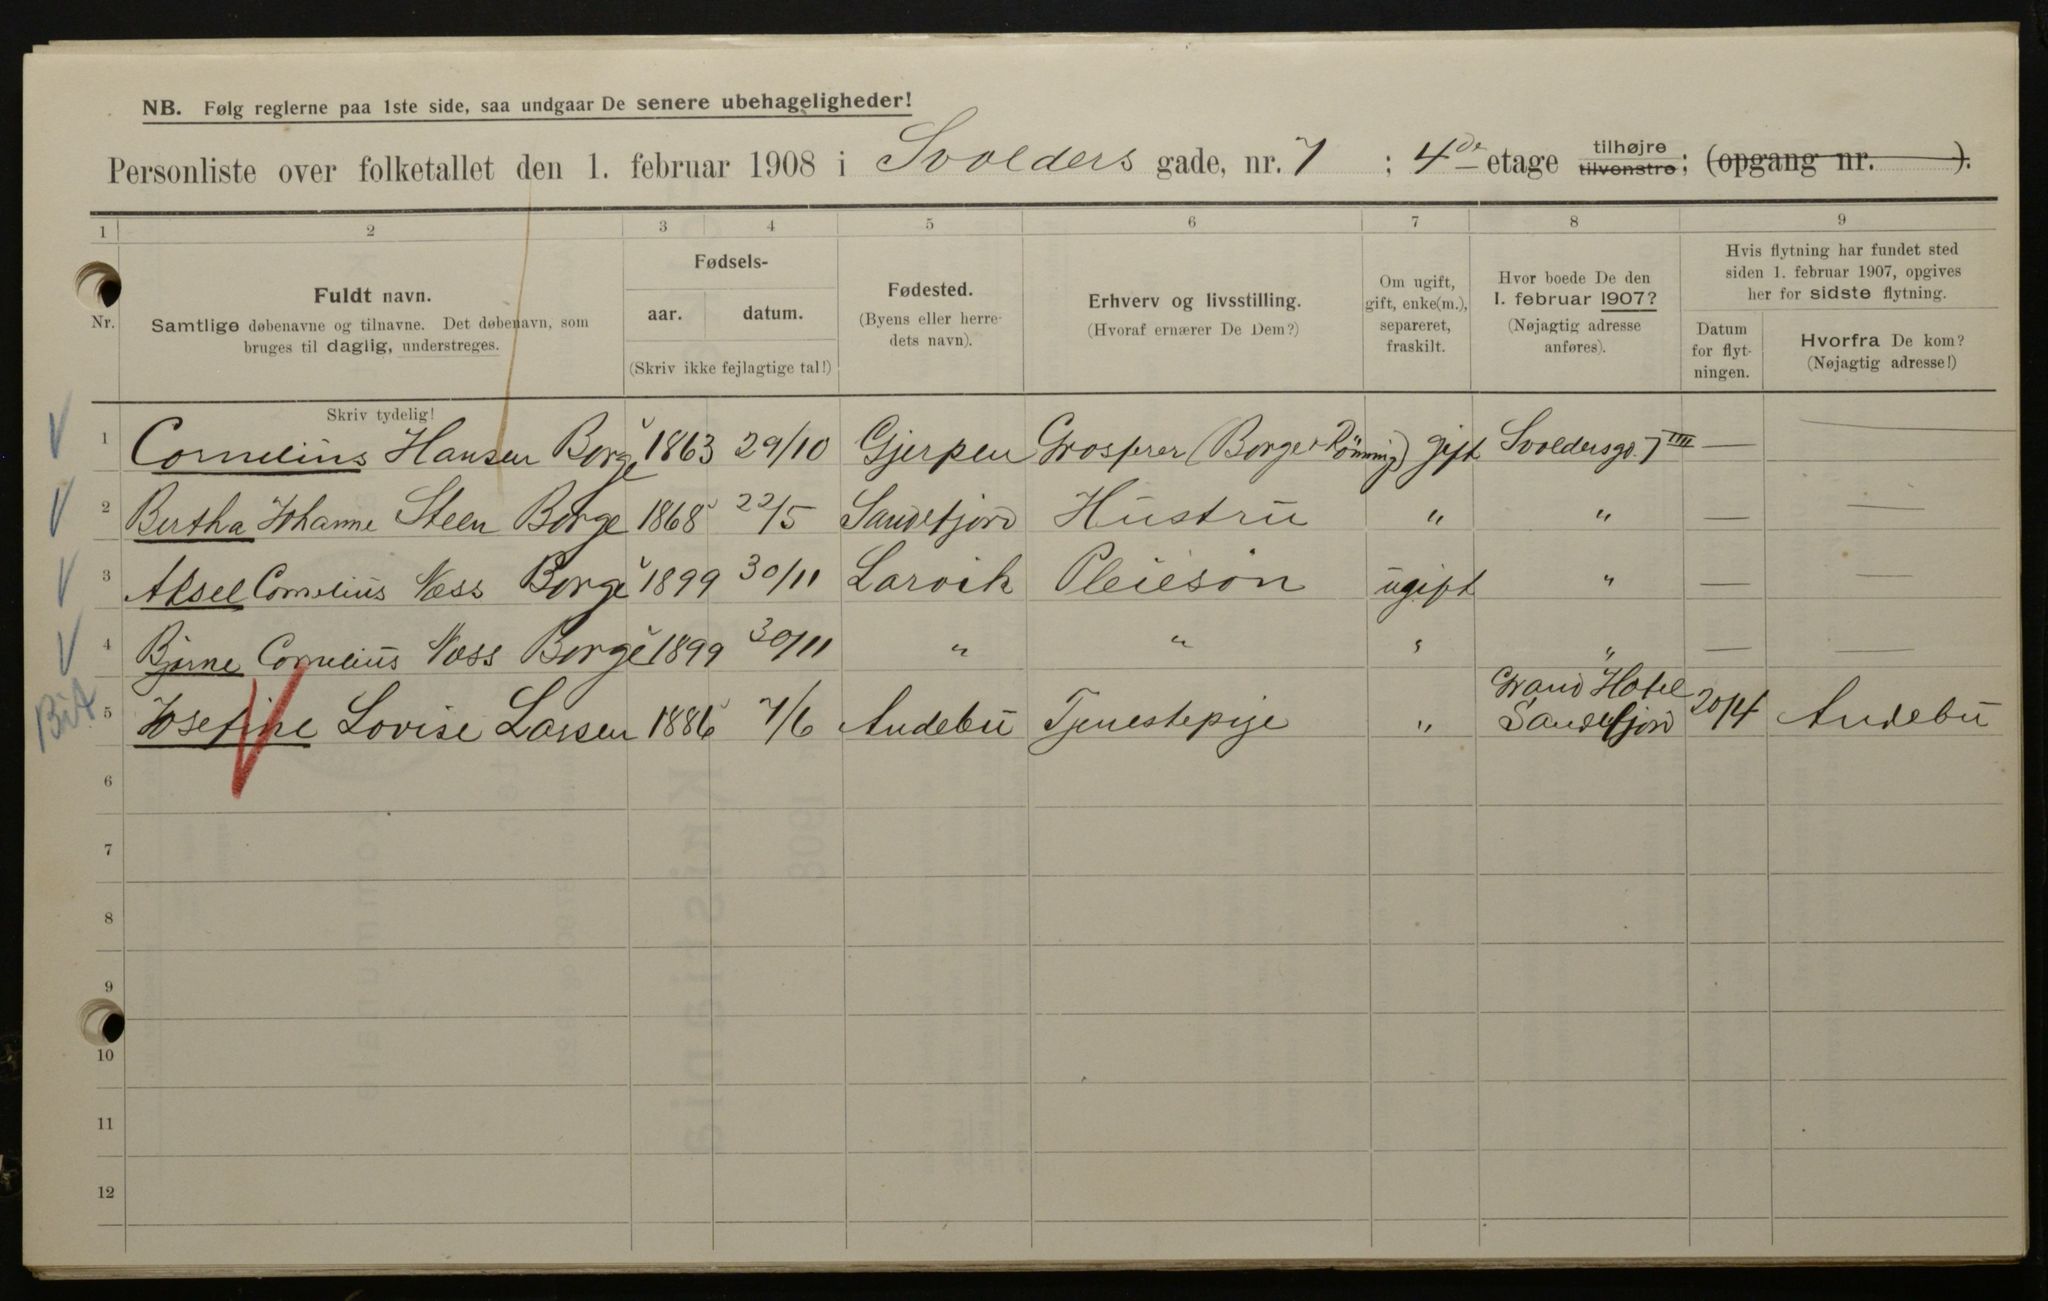 NB. Følg reglerne paa 1ste side, saa undgaar De senere ubehageligheder!
Personliste over folketallet den 1. februar 1908 i Svolders gade, nr. 7 ; 4de etage tilhøjre tilvenstre; (opgang nr. ).
1 2 3 4 5 6 7 8 9
Nr.
Fuldt navn.
Samtlige døbenavne og tilnavne. Det døbenavn, som
bruges til daglig, understreges.
Skriv tydelig!
Fødsels-
aar. datum.
(Skriv ikke fejlagtige tal!)
Fødested.
(Byens eller herre-
dets navn).
Erhverv og livsstilling.
(Hvoraf ernærer De Dem?)
Om ugift,
gift, enke(m.),
separeret,
fraskilt.
Hvor boede De den
1. februar 1907?
(Nøjagtig adresse
anføres).
Hvis flytning har fundet sted
siden 1. februar 1907, opgives
her for sidste flytning.
Datum
for flyt-
ningen.
Hvorfra De kom?
(Nøjagtig adresse!)
1 Cornelius Hansen Borge 1863 29/10 Gjerpen Grosserer (Borge & Rönning) gift Svoldersgd. 7 IIII —
2 Bertha Johanne Steen Borge 1868 22/5 Sandefjord Hustru " " — —
3 Aksel Cornelius Næss Borge 1899 30/11 Larvik Pleiesön ugift " — —
4 Bjarne Cornelius Næss Borge 1899 30/11 " " " " — —
Bit 5 Josefine Lovise Larsen 1886 7/6 Andebu Tjenestepige " Grand Hotel Sandefjord 20/4 Andebu
6
7
8
9
10
11
12